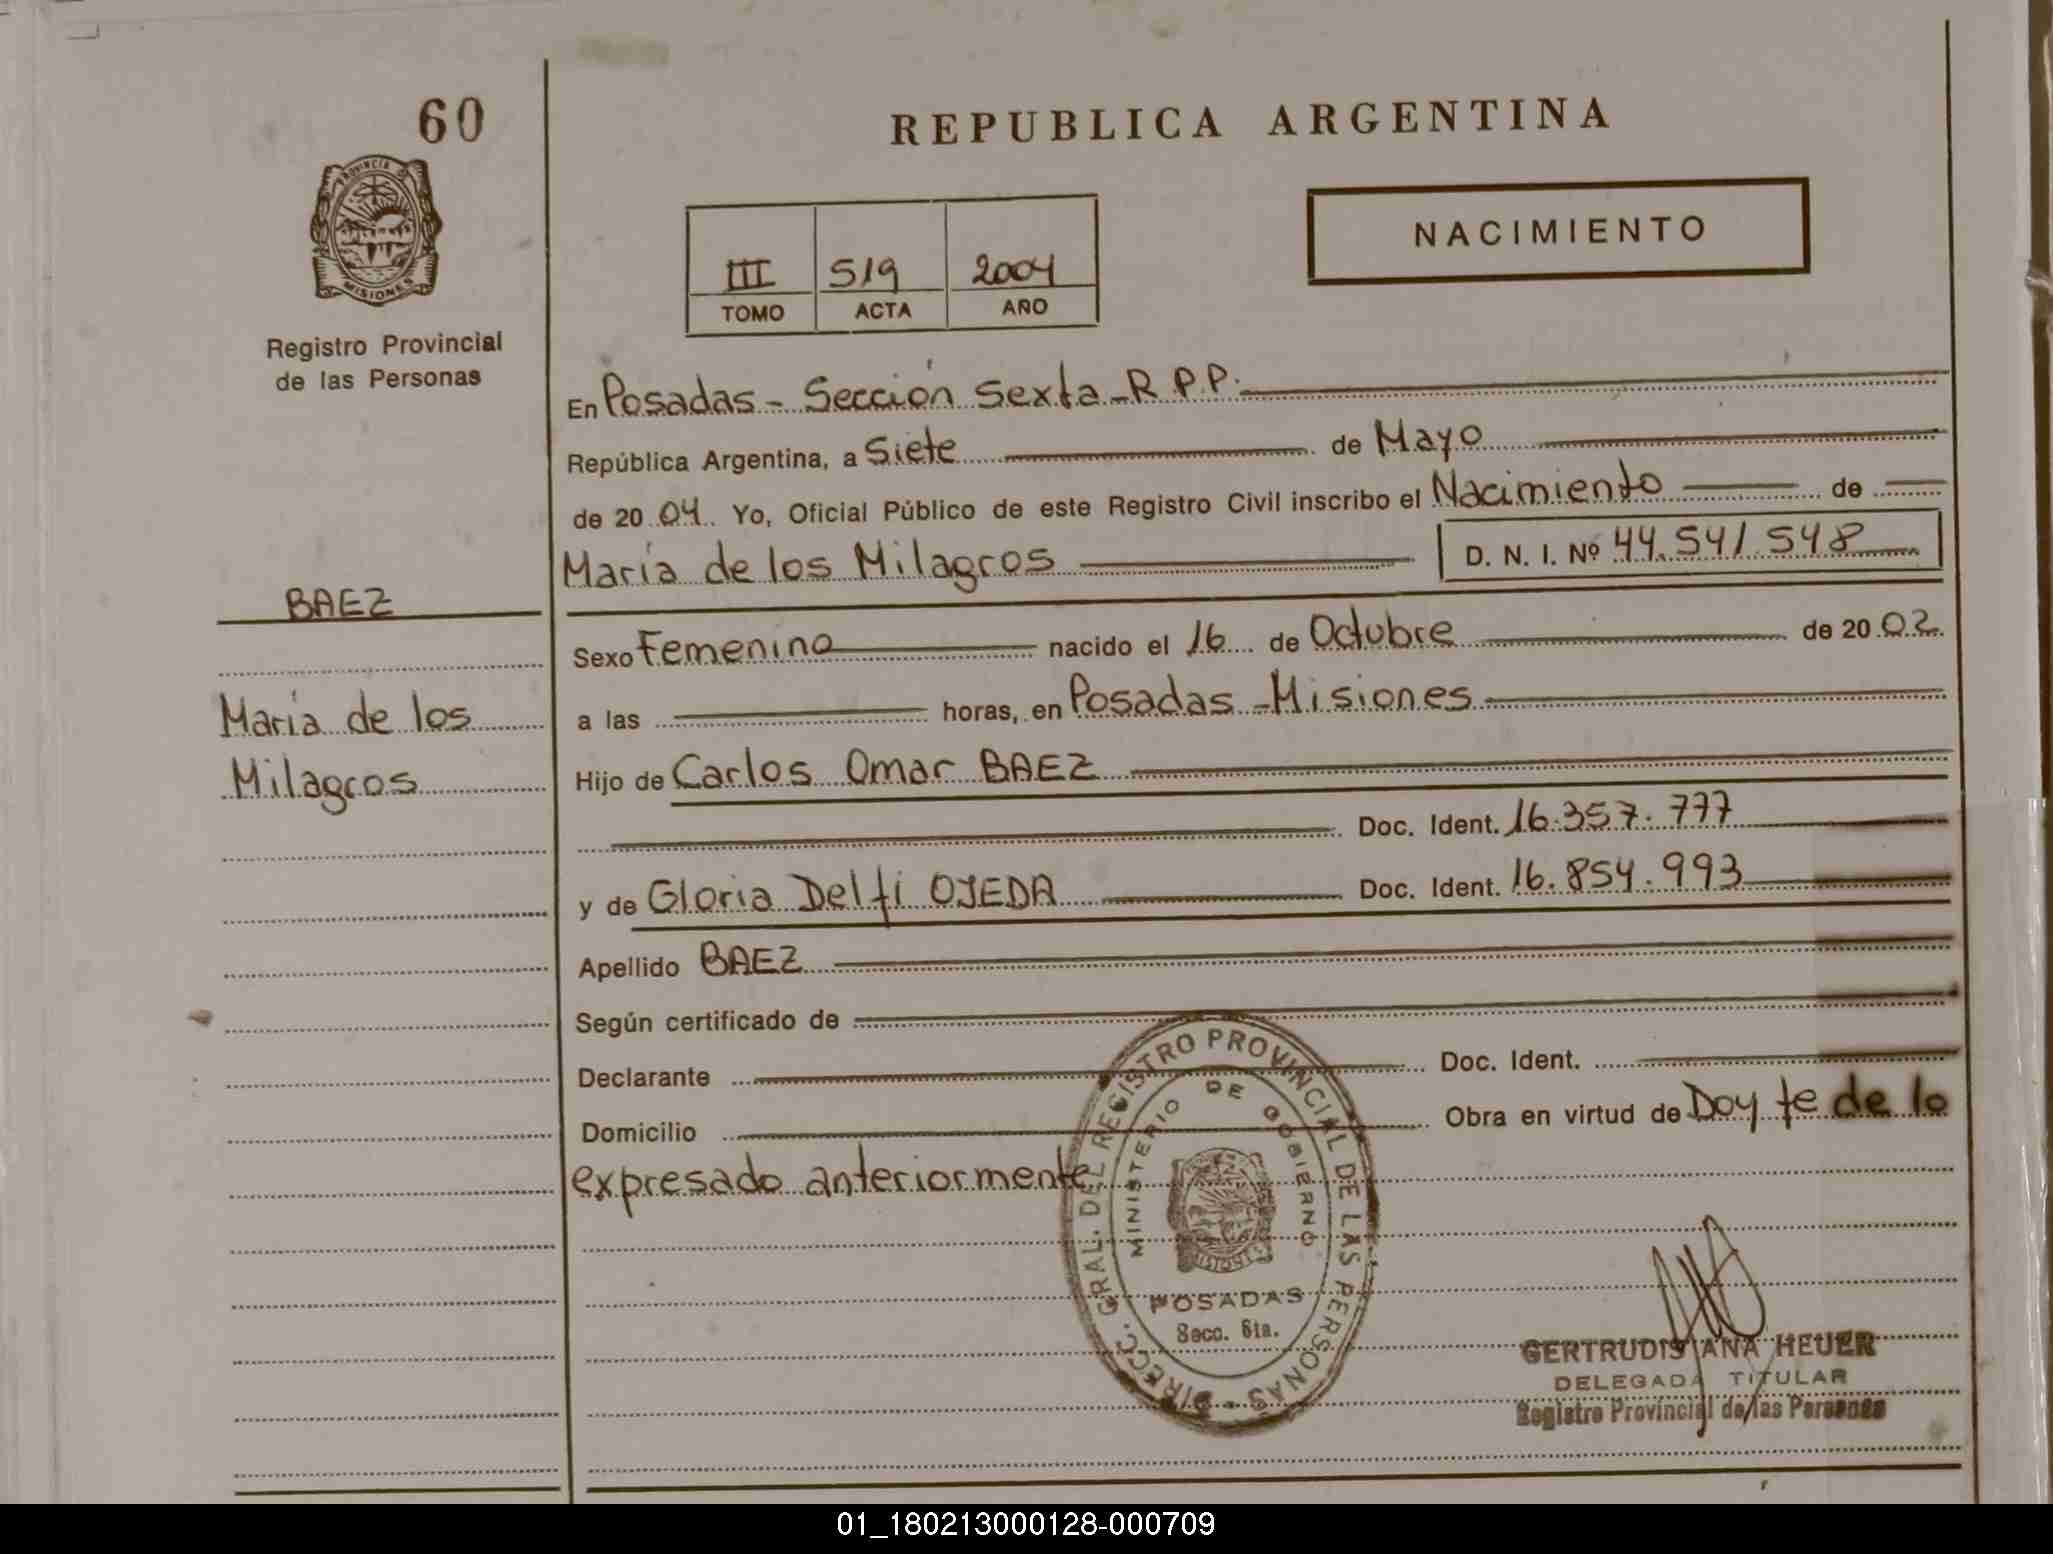 60
REPUBLICA ARGENTINA
PROVINCIA DE
MISIONES
Registro Provincial
de las Personas
III 519 2004
TOMO ACTA AÑO
NACIMIENTO
En Posadas - Sección Sexta - R.P.P.
República Argentina, a Siete de Mayo
de 2004. Yo, Oficial Público de este Registro Civil inscribo el Nacimiento de
María de los Milagros D. N. I. Nº 44.541.548
BAEZ
Sexo Femenino nacido el 16 de Octubre de 2002
María de los
Milagros
a las horas, en Posadas - Misiones
Hijo de Carlos Omar BAEZ
Doc. Ident. 16.357.777
y de Gloria Delfi OJEDA Doc. Ident. 16.854.993
Apellido BAEZ
Según certificado de
Declarante Doc. Ident.
Domicilio Obra en virtud de Doy fe de lo
expresado anteriormente
DIRECC. GRAL. DEL REGISTRO PROVINCIAL DE LAS PERSONAS
MINISTERIO DE GOBIERNO
MISIONES
POSADAS
Secc. 6ta.
GERTRUDIS ANA HEUER
DELEGADA TITULAR
Registro Provincial de las Personas
01_180213000128-000709